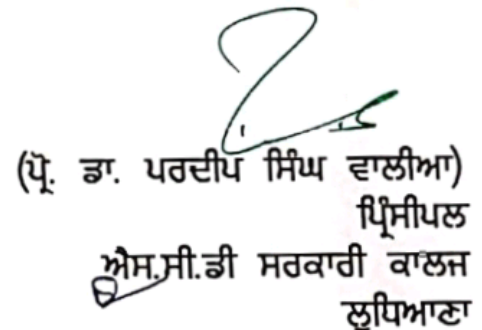 (ਪ੍ਰੋ. ਡਾ. ਪਰਦੀਪ ਸਿੰਘ ਵਾਲੀਆ)
ਪ੍ਰਿੰਸੀਪਲ
ਐਸ.ਸੀ.ਡੀ ਸਰਕਾਰੀ ਕਾਲਜ
ਲੁਧਿਆਣਾ